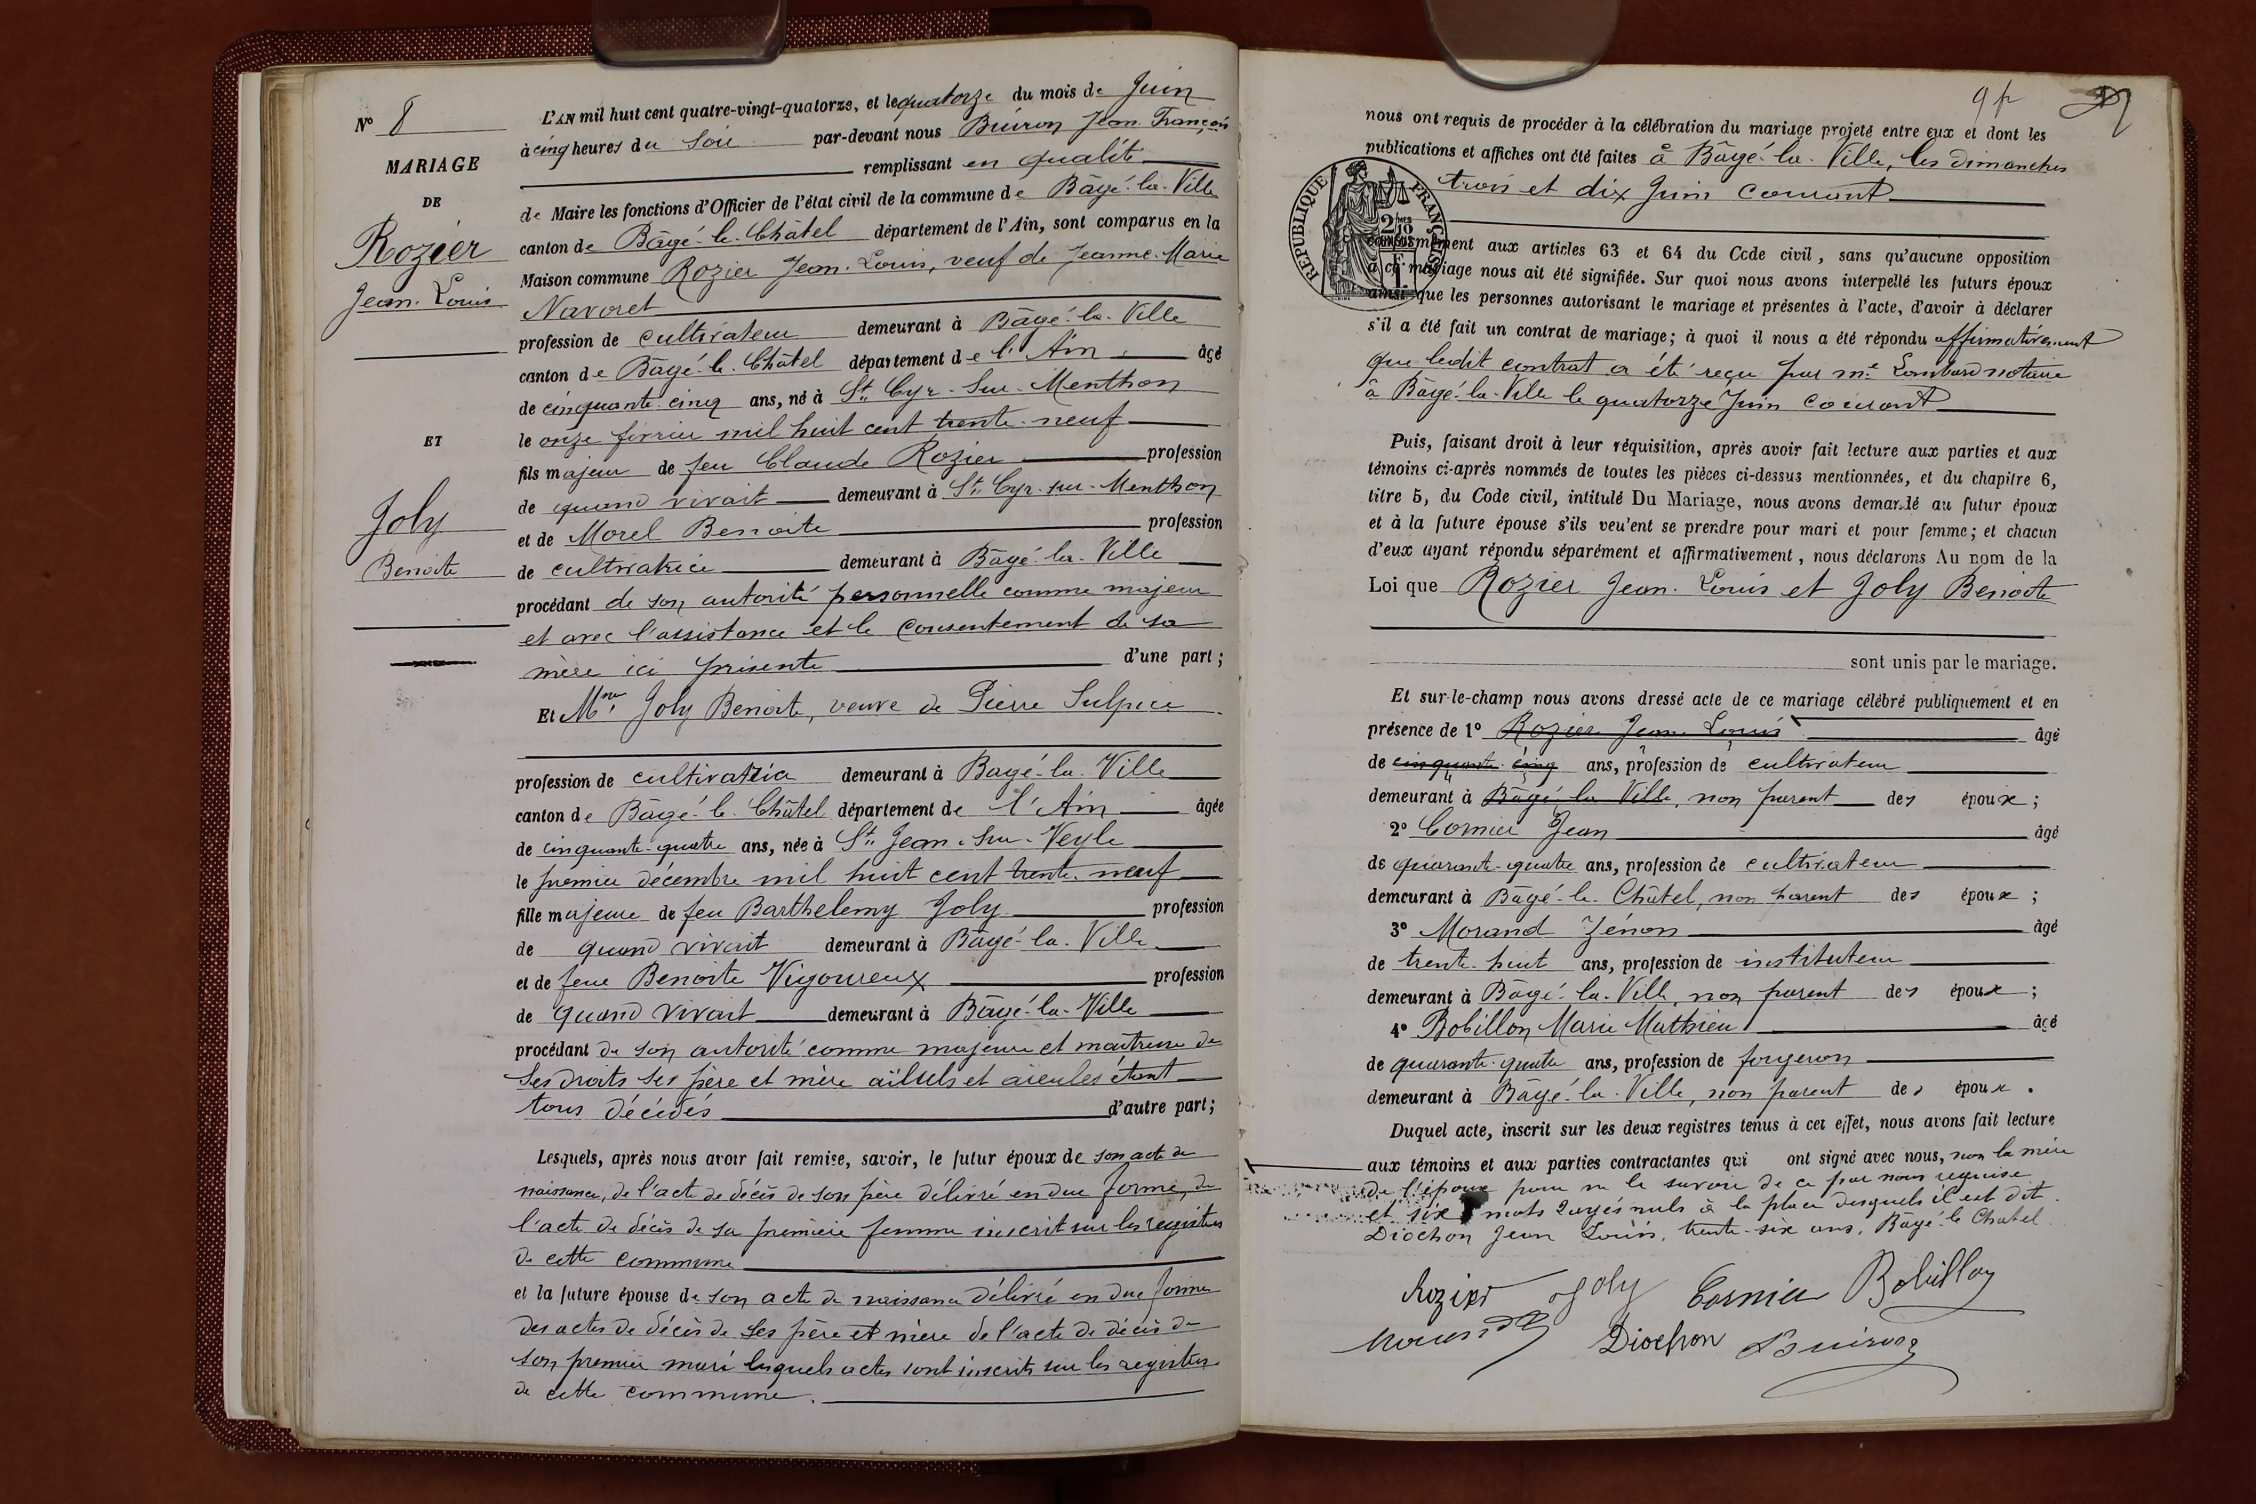 N° 8
MARIAGE
DE
Rozier
Jean-Louis
ET
Joly
Benoite
L'AN mil huit cent quatre-vingt-quatorze, et le quatorze du mois de Juin
à cinq heures du soir par-devant nous Buiron Jean François
remplissant en qualité
de Maire les fonctions d'Officier de l'état civil de la commune de Bâgé-la-Ville
canton de Bâgé-le-Châtel département de l'Ain, sont comparus en la
Maison commune Rozier Jean-Louis, veuf de Jeanne-Marie
Navoret
profession de cultivateur demeurant à Bâgé-la-Ville
canton de Bâgé-le-Châtel département de l'Ain, âgé
de cinquante-cinq ans, né à St Cyr-sur-Menthon
le onze février mil huit cent trente-neuf
fils majeur de feu Claude Rozier profession
de quand vivait demeurant à St Cyr-sur-Menthon
et de Morel Benoite profession
de cultivatrice demeurant à Bâgé-la-Ville
procédant de son autorité personnelle comme majeur
et avec l'assistance et le consentement de sa
mère ici présente d'une part;
Et Mme Joly Benoite, veuve de Pierre Sulpice
profession de cultivatrice demeurant à Bagé-la-Ville
canton de Bâgé-le-Châtel département de l'Ain âgée
de cinquante-quatre ans, née à St Jean-sur-Veyle
le premier décembre mil huit cent trente-neuf
fille majeure de feu Barthelemy Joly profession
de quand vivait demeurant à Bâgé-la-Ville
et de feue Benoite Vigoureux profession
de quand vivait demeurant à Bâgé-la-Ville
procédant de son autorité comme majeure et maitresse de
ses droits ses père et mère aïeuls et aïeules étant
tous décédés d'autre part;
Lesquels, après nous avoir fait remise, savoir, le futur époux de son acte de
naissance, de l'acte de décès de son père délivré en due forme, de
l'acte de décès de sa première femme inscrit sur les registres
de cette commune
et la future épouse de son acte de naissance délivré en due forme
des actes de décès de ses père et mère de l'acte de décès de
son premier mari lesquels actes sont inscrits sur les registres
de cette commune.
9 f
nous ont requis de procéder à la célébration du mariage projeté entre eux et dont les
publications et affiches ont été faites à Bâgé-la-Ville, les dimanches
trois et dix Juin courant
RÉPUBLIQUE FRANÇAISE
conformément aux articles 63 et 64 du Code civil, sans qu'aucune opposition
à ce mariage nous ait été signifiée. Sur quoi nous avons interpellé les futurs époux
ainsi que les personnes autorisant le mariage et présentes à l'acte, d'avoir à déclarer
s'il a été fait un contrat de mariage; à quoi il nous a été répondu affirmativement
que ledit contrat a été reçu par me Lombard notaire
à Bâgé-la-Ville le quatorze Juin courant
Puis, faisant droit à leur réquisition, après avoir fait lecture aux parties et aux
témoins ci-après nommés de toutes les pièces ci-dessus mentionnées, et du chapitre 6,
titre 5, du Code civil, intitulé Du Mariage, nous avons demandé au futur époux
et à la future épouse s'ils veulent se prendre pour mari et pour femme; et chacun
d'eux ayant répondu séparément et affirmativement, nous déclarons Au nom de la
Loi que Rozier Jean-Louis et Joly Benoite
sont unis par le mariage.
Et sur-le-champ nous avons dressé acte de ce mariage célébré publiquement et en
présence de 1° Rozier Jean Louis âgé
de cinquante-cinq ans, profession de cultivateur
demeurant à Bâgé-la-Ville, non parent des époux;
2° Cornier Jean âgé
de quarante-quatre ans, profession de cultivateur
demeurant à Bâgé-le-Châtel, non parent des époux;
3° Morand Zénon âgé
de trente-huit ans, profession de instituteur
demeurant à Bâgé-la-Ville, non parent des époux;
4° Bobillon Marie Mathieu âgé
de quarante-quatre ans, profession de forgeron
demeurant à Bâgé-la-Ville, non parent des époux.
Duquel acte, inscrit sur les deux registres tenus à cet effet, nous avons fait lecture
aux témoins et aux parties contractantes qui ont signé avec nous, non la mère
de l'époux pour ne le savoir de ce par nous requise
et six mots rayés nuls à la place desquels il est dit
Diochon Jean Louis, trente-six ans, Bâgé-le-Chatel
Rozier Joly Cornier Bobillon
Morand Diochon Buiron